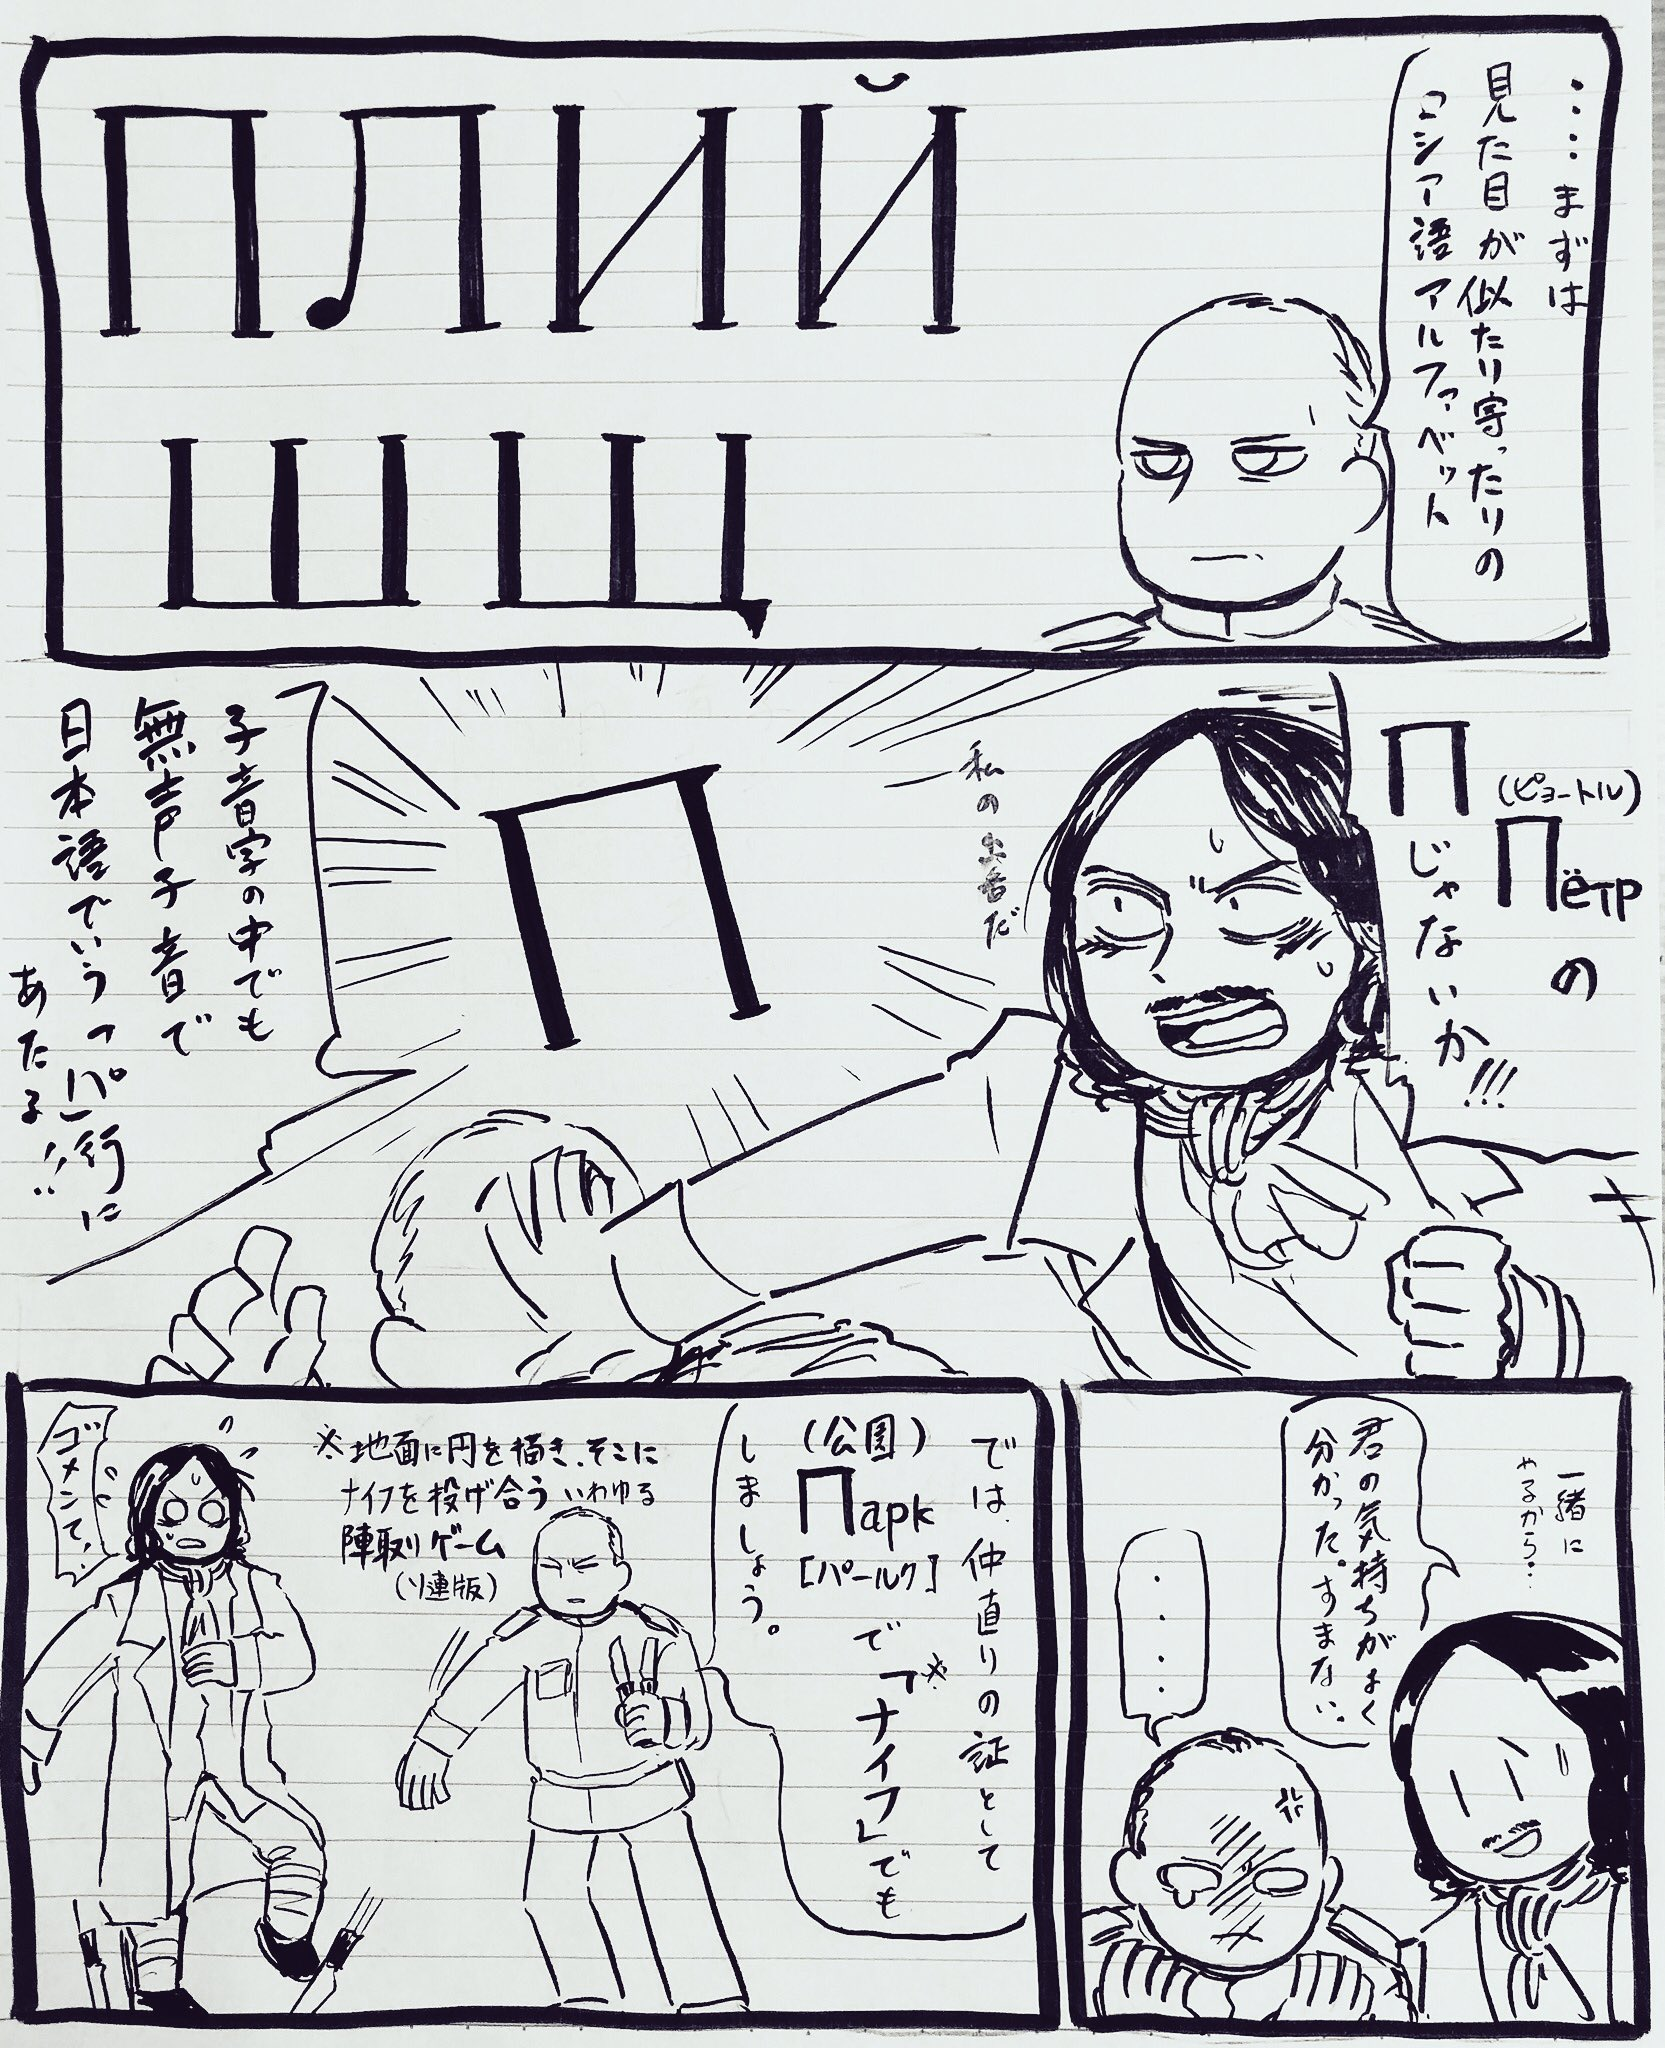 ……まずは
見た目が似たり寄ったりの
ロシア語アルファベット
ПЛИЙ
ШЩ
(ピョートル)
Пётрの
Пじゃないか!!!
私の
だ
П
子音字の中でも
無声子音で
日本語でいう「パ」行に
あたる!!
一緒に
やるから…
君の気持ちがよく
分かった。すまない。
・・・・
では、仲直りの証として
(公園)
Парк
[パールク]
で「ナイフ」でも
※
しましょう。
※地面に円を描き、そこに
ナイフを投げ合ういわゆる
陣取りゲーム
(ソ連版)
ゴメンて!!